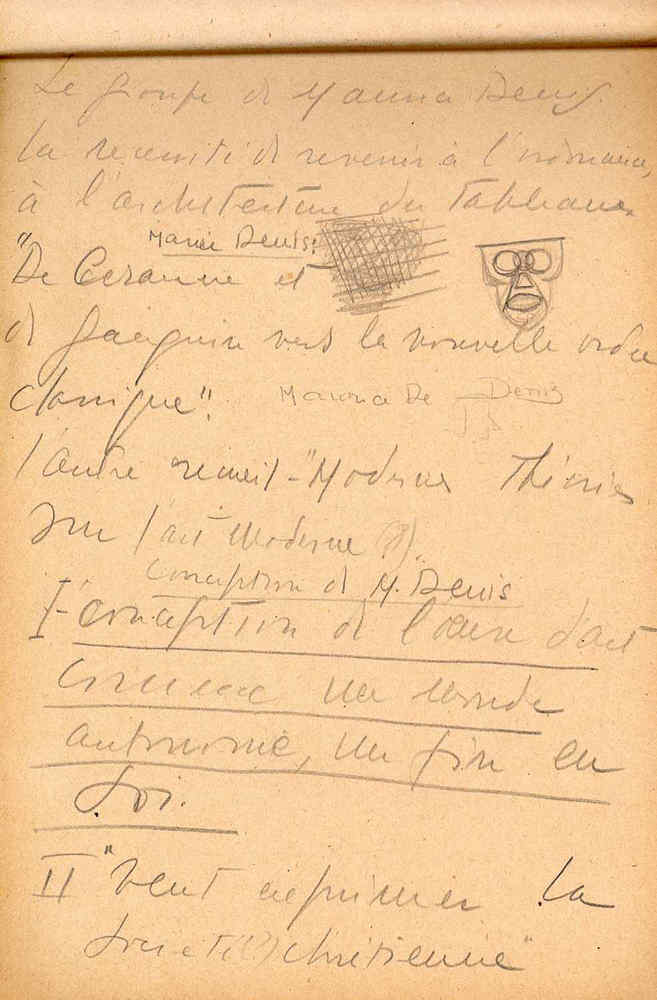 Le groupe de Maurice Denis
la necessité de revenir à l'ordonance,
à l'architecture du Tableau.
Maurice Denis:
"De Cezanne et
de Gauguin vers la nouvelle ordre
classique".
Denis
l'autre recueil - "Moderne Théories
sur l'art Moderne (?)
Conception de M. Denis
I - conception de l'œuvre d'art
comme un monde
autonome, un fin en
Soi.
II "veut exprimer la
Societé(?) chrétienne"